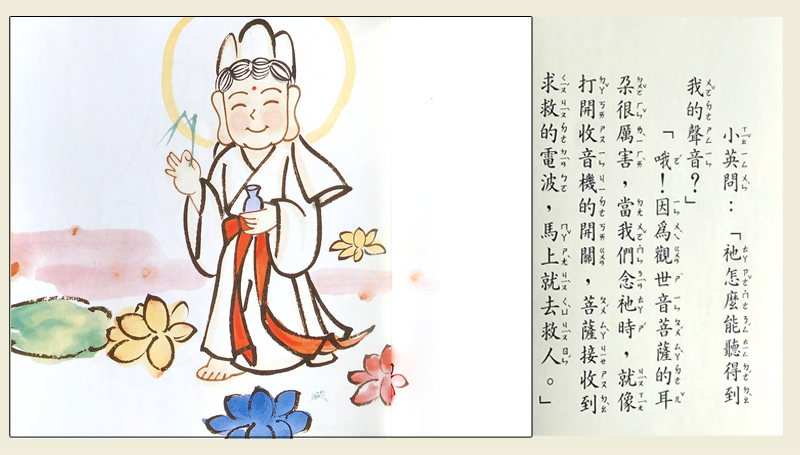 小英問：「祂怎麼能聽得到
我的聲音？」
「哦！因為觀世音菩薩的耳
朵很厲害，當我們念祂時，就像
打開收音機的開關，菩薩接收到
求救的電波，馬上就去救人。」